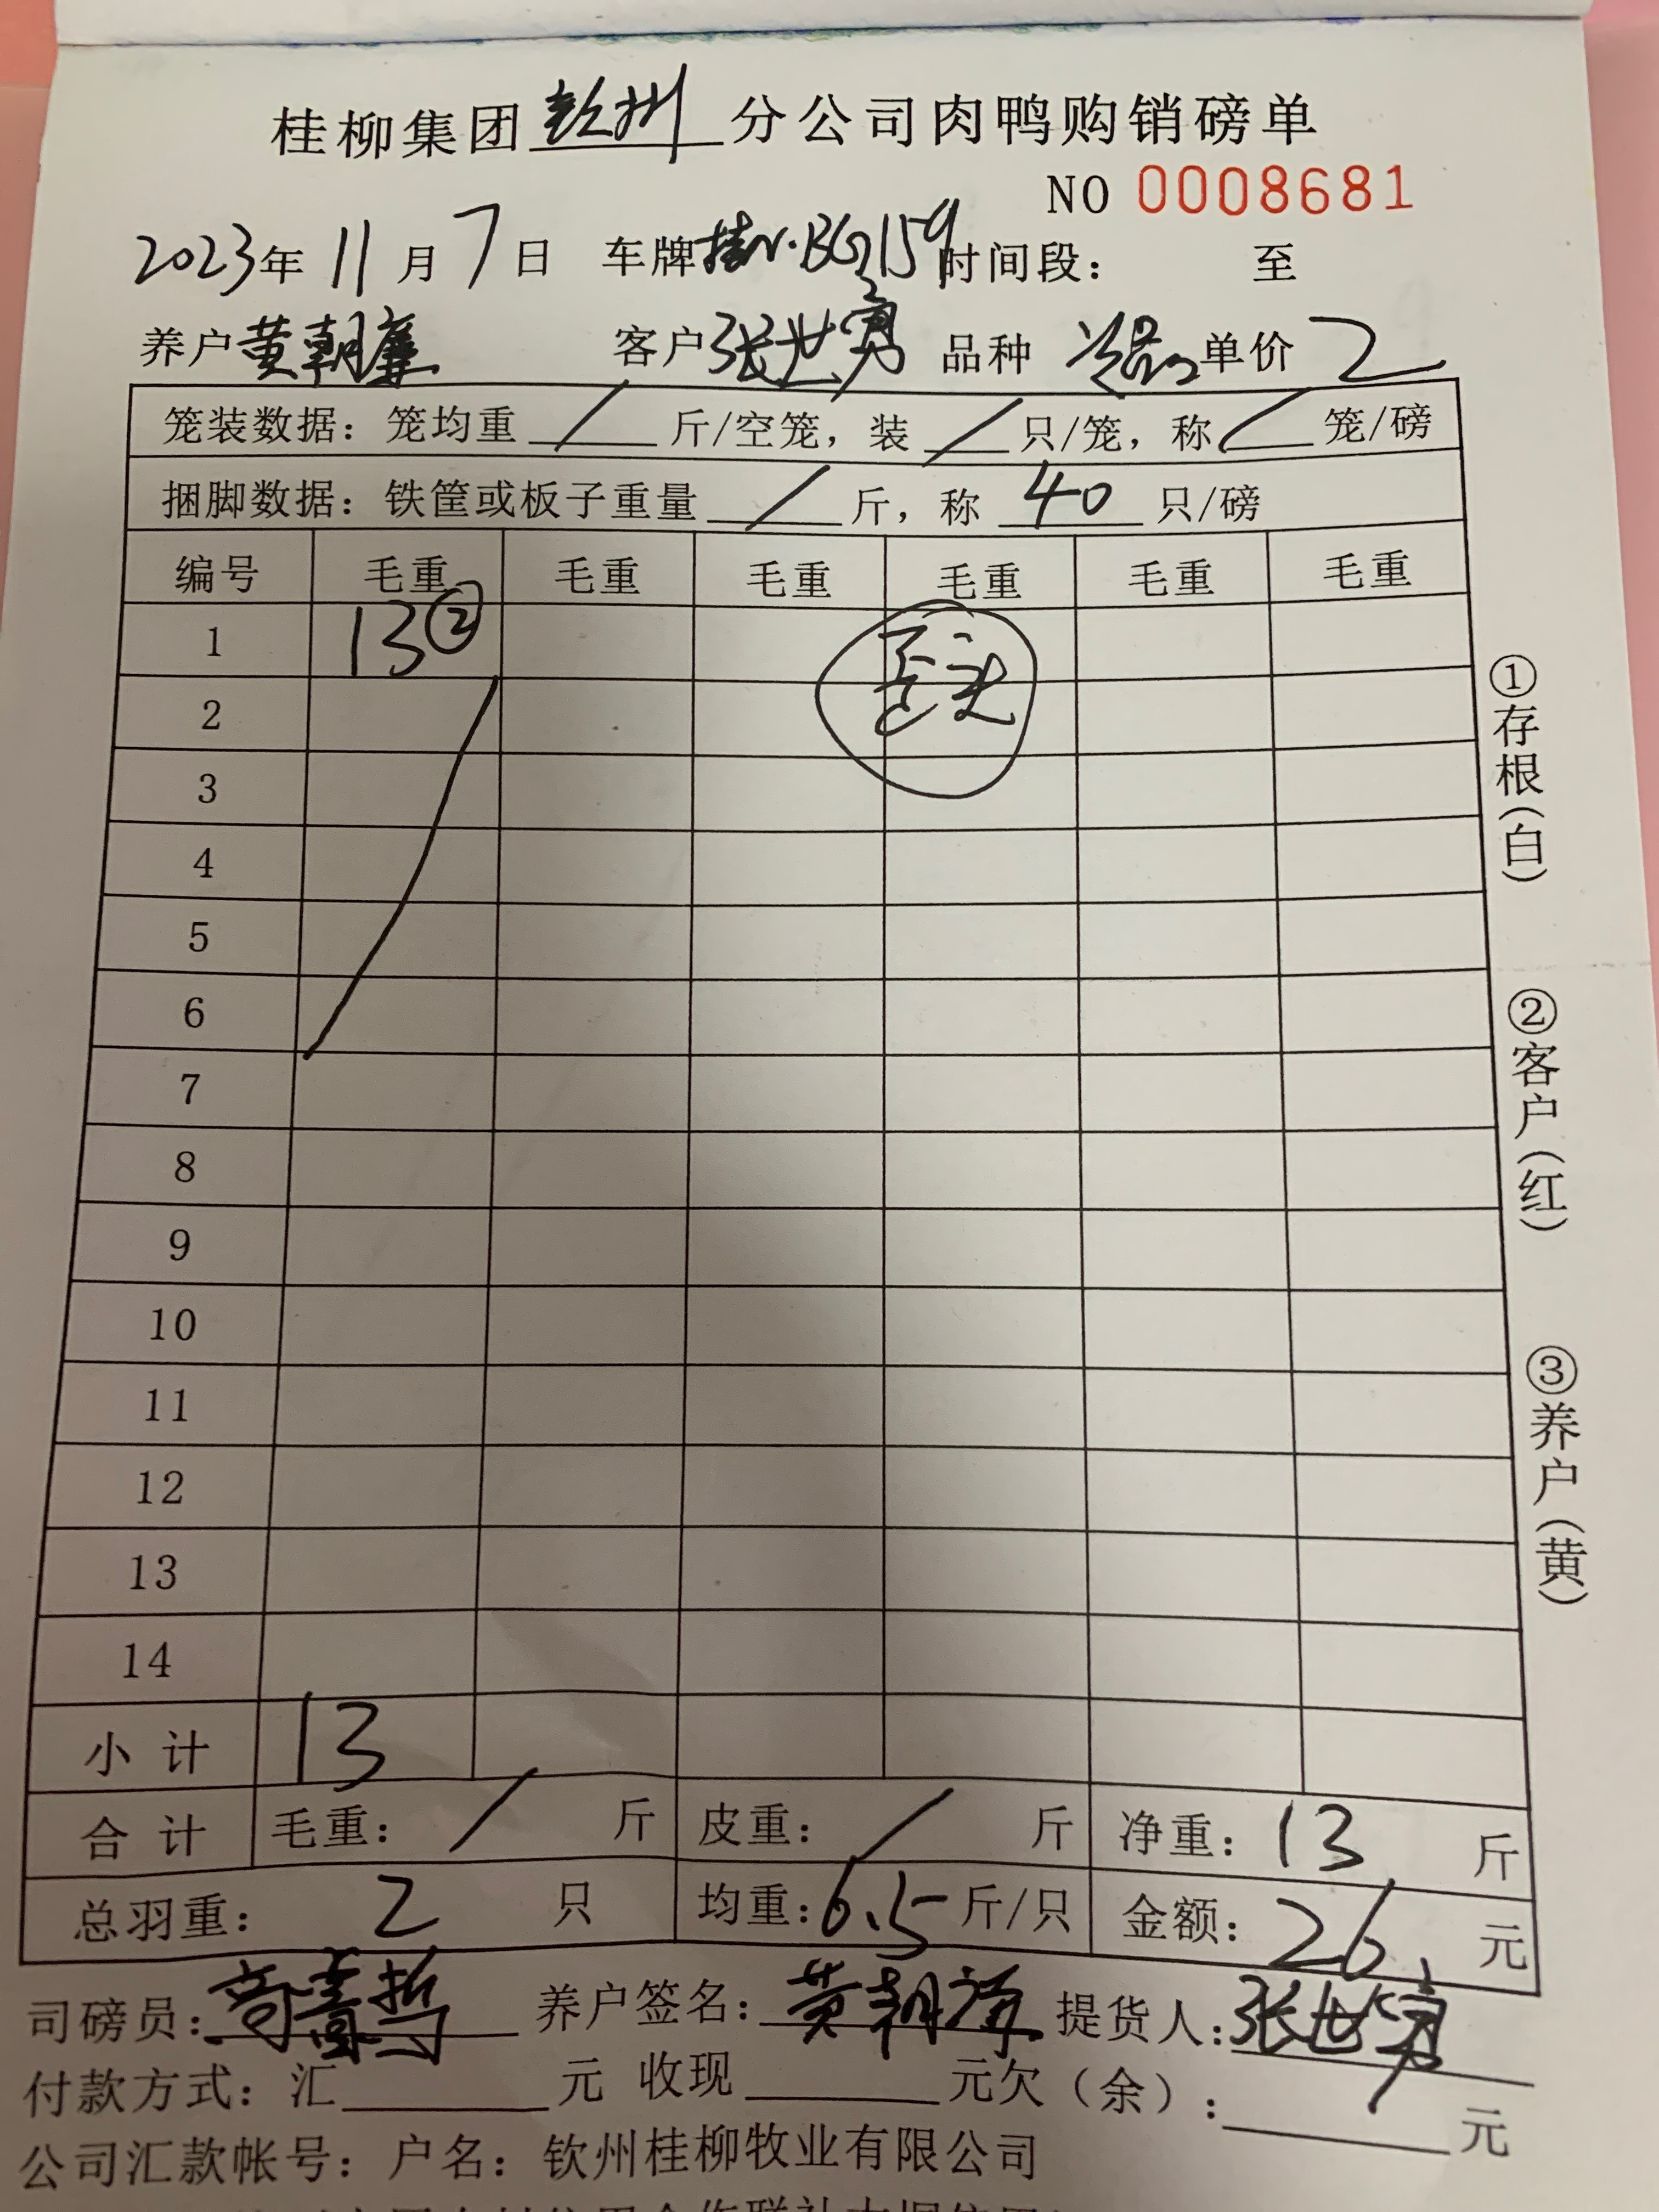 桂柳集团钦州分公司肉鸭购销磅单
NO 0008681
2023年 11月 7日 车牌桂N·BG159 时间段： 至
养户黄朝 客户张世勇 品种 单价 2
笼装数据：笼均重 / 斤/空笼，装 / 只/笼，称 / 笼/磅
捆脚数据：铁筐或板子重量 / 斤，称 40 只/磅
编号 毛重 毛重 毛重 毛重 毛重 毛重
1 13②
2
3
4
5
6
7
8
9
10
11
12
13
14
小计 13
合计 毛重： / 斤 皮重： / 斤 净重：13 斤
总羽重： 2 只 均重：6.5斤/只 金额：26元
①存根(白)
②客户(红)
③养户(黄)
司磅员： 养户签名：黄朝 提货人：张世勇
付款方式：汇 元 收现 元欠（余）： 元
公司汇款帐号：户名：钦州桂柳牧业有限公司